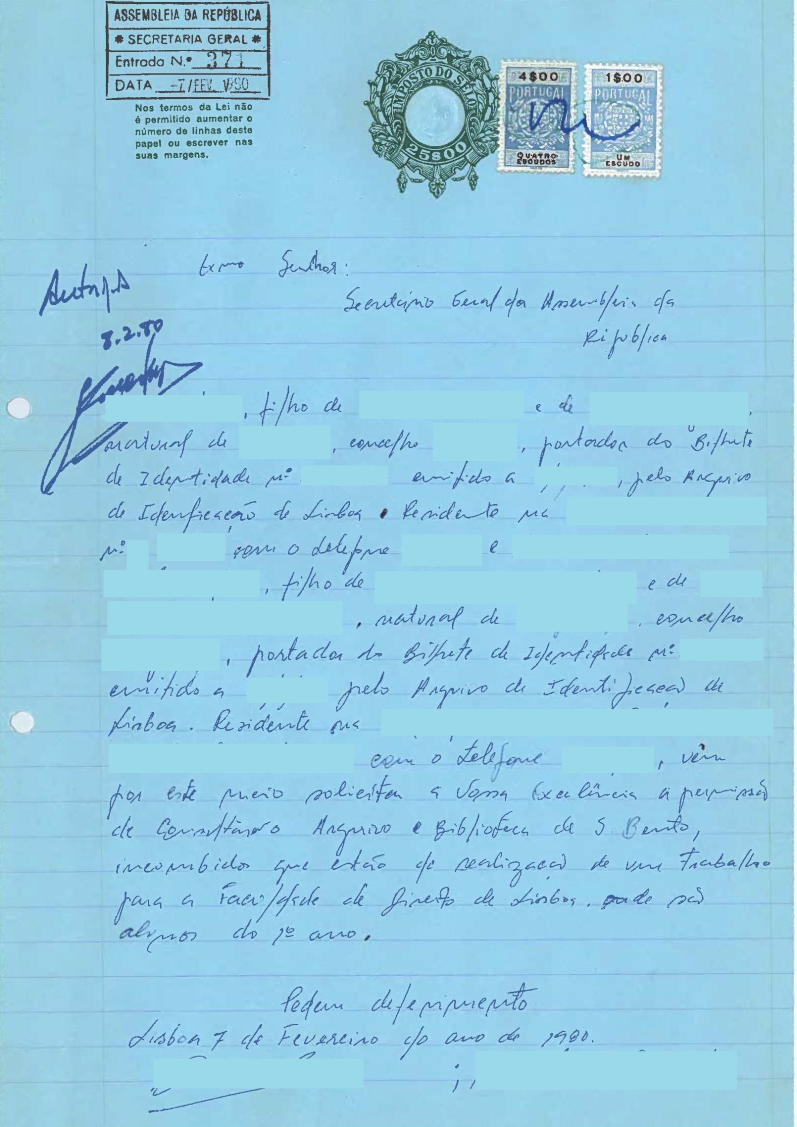 ASSEMBLEIA DA REPÚBLICA
* SECRETARIA GERAL *
Entrada N.º 371
DATA -7/FEV. 1980
Nos termos da Lei não
é permitido aumentar o
número de linhas deste
papel ou escrever nas
suas margens.
IMPOSTO DO SELO
25$00
4$00
PORTUGAL
QUATRO
ESCUDOS
1$00
PORTUGAL
UM
ESCUDO
8.2.80
Exmo Senhor:
Secretário Geral da Assembleia da
República
, filho de e de ,
natural de , concelho , portador do Bilhete
de Identidade nº emitido a , pelo Arquivo
de Idenficação de Lisboa. Residente na
nº com o telefone e
, filho de e de
, natural de , concelho
, portador do Bilhete de Identidade nº
emitido a pelo Arquivo de Identificação de
Lisboa. Residente na
com o telefone , vêm
por este meio solicitar a Vossa Excelência a permissão
de Arquivo e Biblioteca de S Bento,
incumbidos que estão de realização de um Trabalho
para a Faculdade de Direito de Lisboa. onde são
alunos do 1º ano.
Pedem deferimento
Lisboa 7 de Fevereiro do ano de 1980.